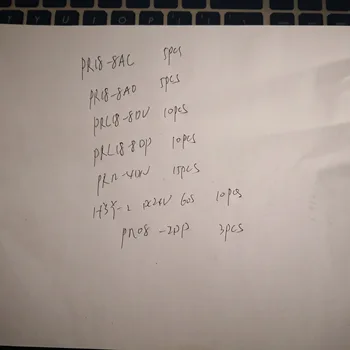 PR18-8AC 5pcs
PR18-8AO 5pcs
PRL18-8DN 10pcs
PRL18-8DP 10pcs
PR12-4DN 15pcs
H3Y-2 DC24V 60S 10pcs
PR08-2DP 3pcs